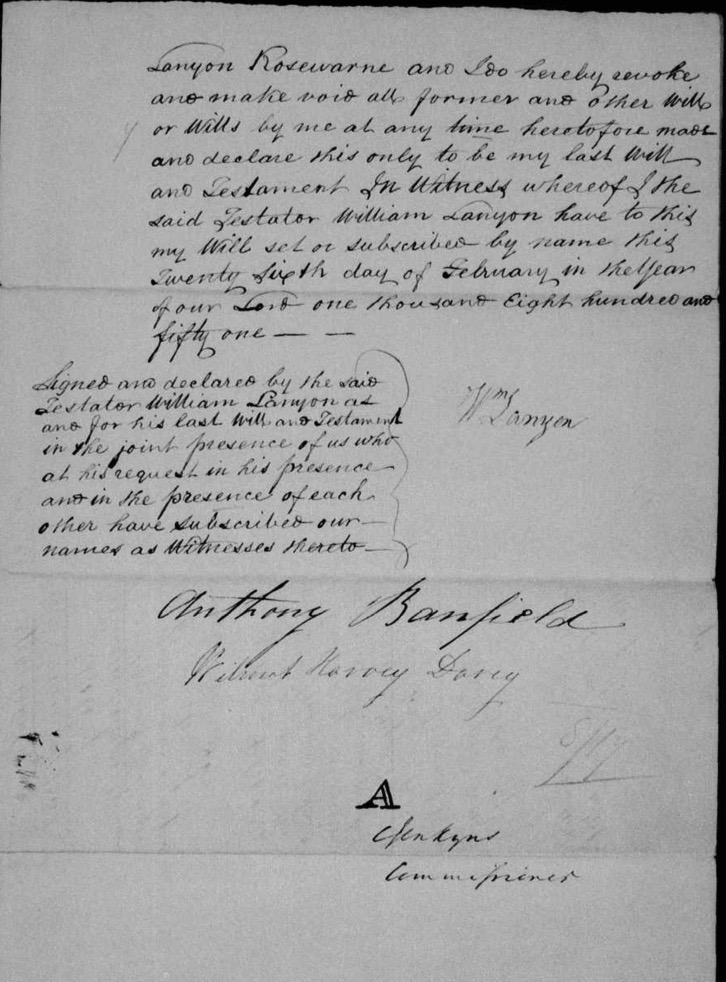 Lanyon Rosewarne and I do hereby revoke
and make void all former and other Will
or Wills by me at any time heretofore made
and declare this only to be my last Will
and Testament In Witness whereof I the
said Testator William Lanyon have to this
my Will set or subscribed by name this
Twenty Sixth day of February in the Year
of our Lord one thousand Eight hundred and
fifty one — —
Signed and declared by the said
Testator William Lanyon as
and for his last Will and Testament
in the joint presence of us who
at his request in his presence
and in the presence of each
other have subscribed our
names as Witnesses thereto
Wm Lanyon
Anthony Banfield
Harvey Davey
A
Jenkyns
Commissioner